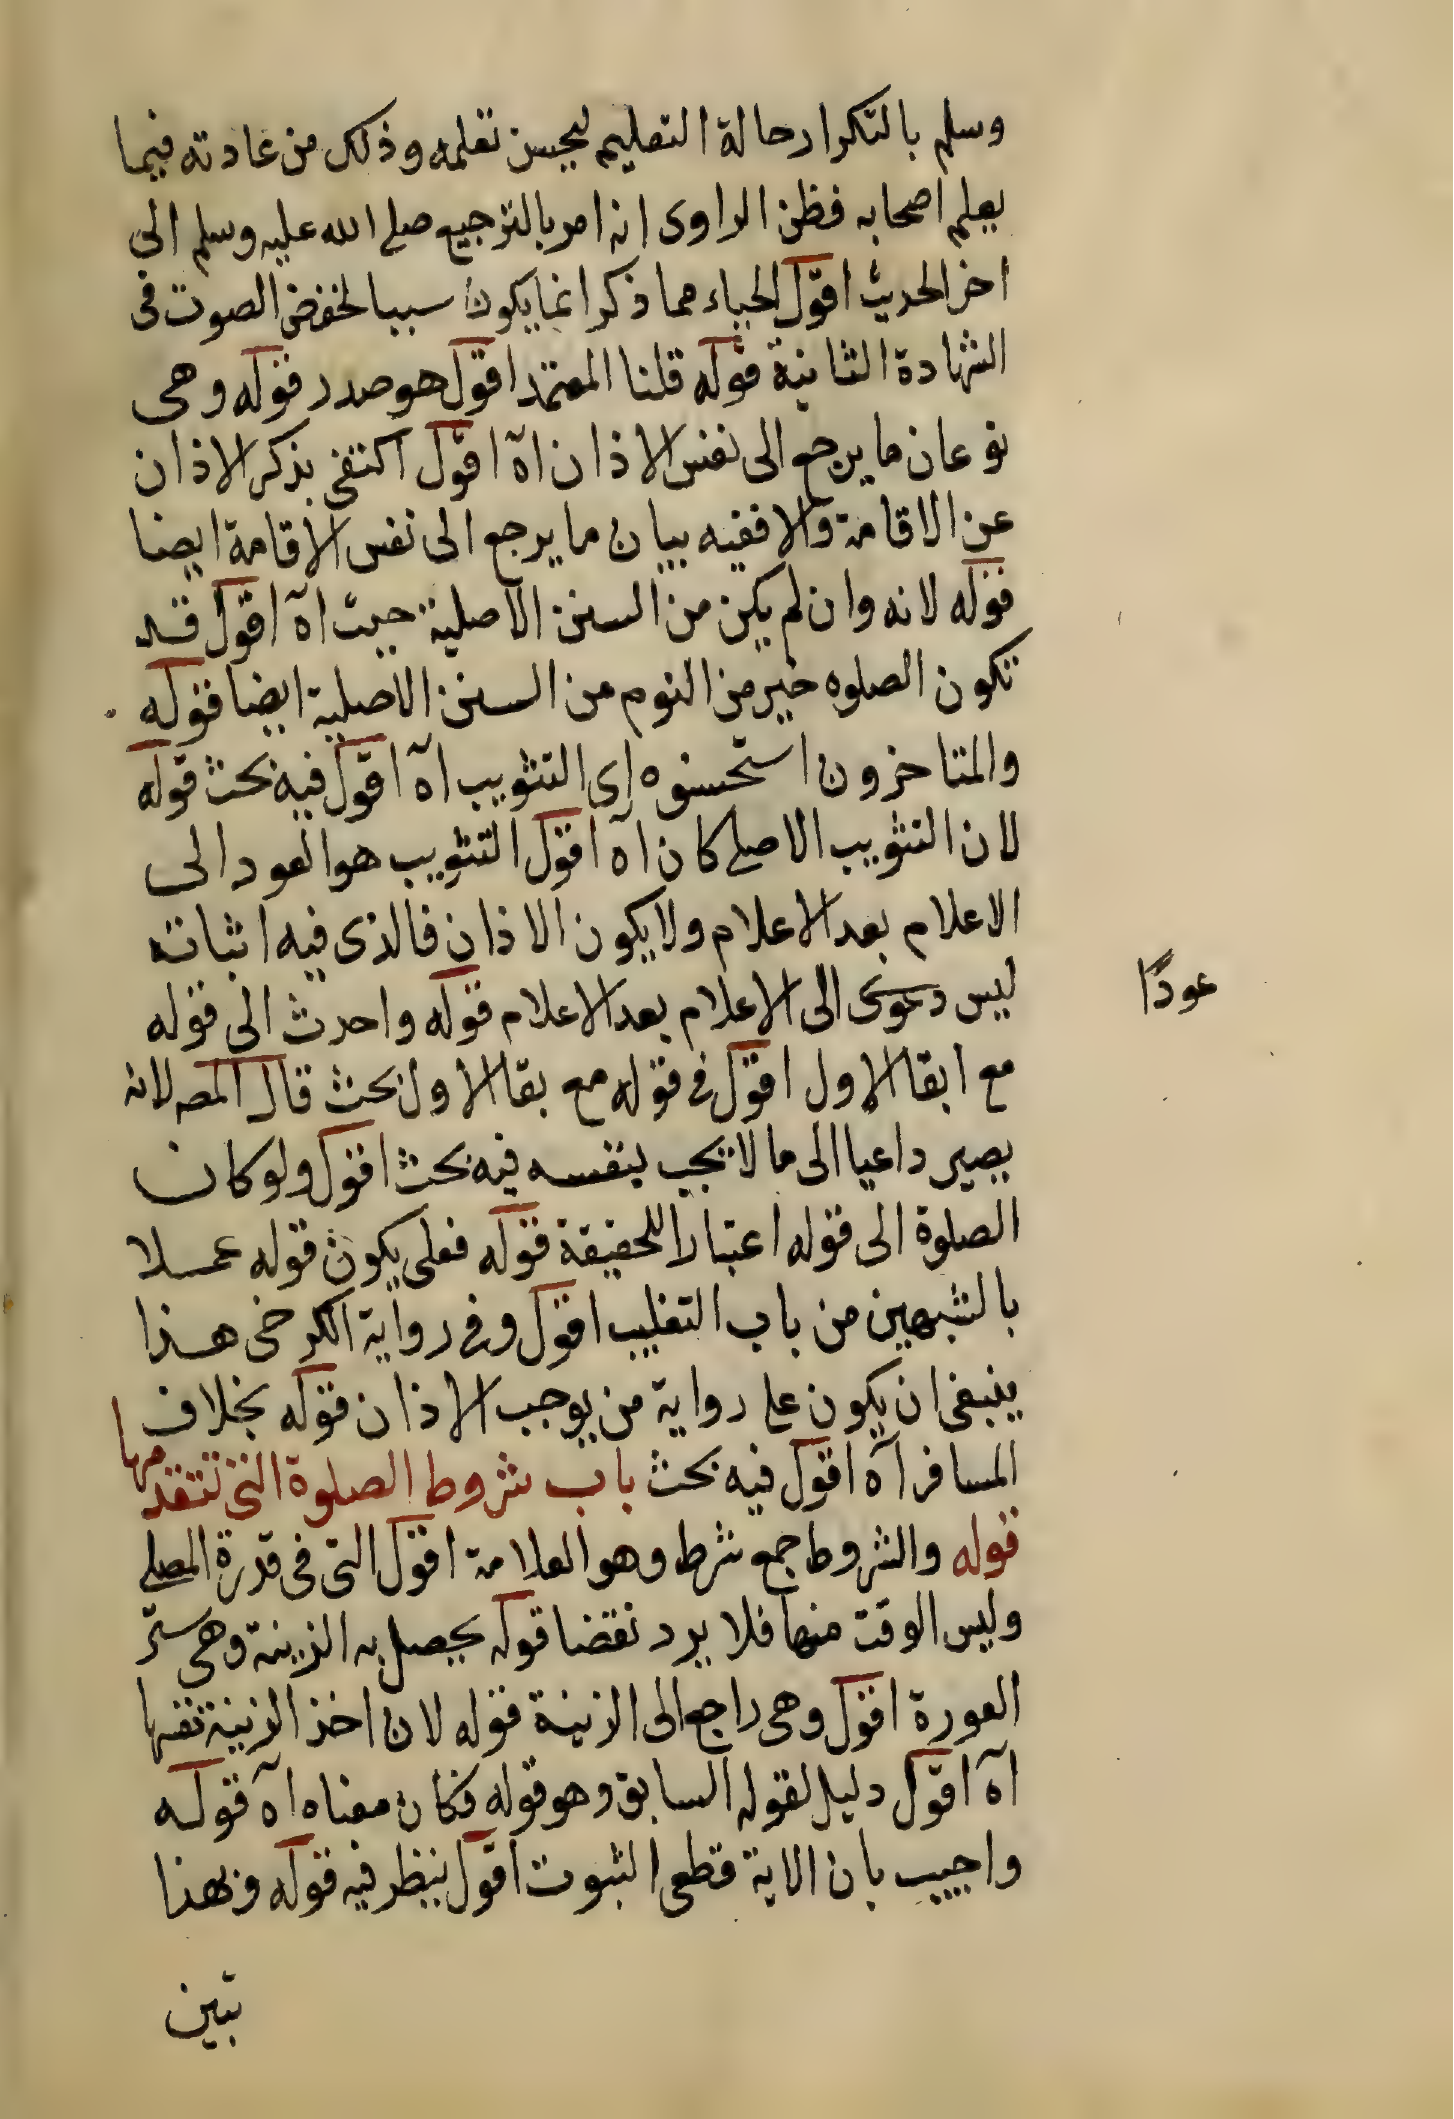 وسلم بالتكرار حالة التعليم ليحسن تعلمه وذلك من عادته فيما
يعلم اصحابه فظن الراوى انه امر بالترجيع صلى الله عليه وسلم الى
اخر الحديث اقول الحياء مما ذكر انما يكون سببا لخفض الصوت فى
الشهادة الثانية قوله قلنا المعتمد اقول هو صدر قوله وهى
نوعان ما يرجع الى نفس الاذان اه اقول اكتفى بذكر الاذان
عن الاقامة والا ففيه بيان ما يرجع الى نفس الاقامة ايضا
قوله لانه وان لم يكن من السنن الاصلية حيث اه اقول قد
تكون الصلوه خير من النوم من السنن الاصلية ايضا قوله
والمتاخرون استحسنوه اى التثويب اه اقول فيه بحث قوله
لان التثويب الاصلى كان اه اقول التثويب هو العود الى
الاعلام بعد الاعلام ولا يكون الاذان فالذى فيه اثباته
ليس دعوى الى الاعلام بعد الاعلام قوله واحدث الى قوله
عودًا
مع ابقا الاول اقول فى قوله مع بقا الاول بحث قال المصه لانه
يصير داعيا الى ما لا يجب بنفسه فيه بحث اقول ولو كان
الصلوة الى قوله اعتبارا للحقيقة قوله فعلى يكون قوله عملا
بالشبهين من باب التغليب اقول وفى رواية الكرخى هذا
ينبغى ان يكون على رواية من يوجب الاذان قوله بخلاف
المسافر اه اقول فيه بحث باب شروط الصلوة التى تتقدمها
قوله والشروط جمع شرط وهو العلامة اقول التى فى قدرة المصلى
وليس الوقت منها فلا يرد نقضا قوله يحصل به الزينة وهى ستر
العورة اقول وهى راجع الى الزينة قوله لان اخذ الزينة نفسها
اه اقول دليل لقوله السابق وهو قوله فكان معناه اه قوله
واجيب بان الاية قطعى الثبوت اقول ينظر فيه قوله وبهذا
تبين